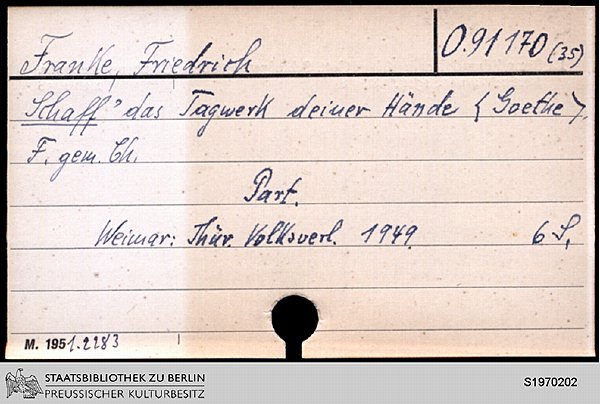 Franke, Friedrich
O.91170 (35)
Schaff' das Tagwerk deiner Hände <Goethe>.
F. gem. Ch.
Part.
Weimar: Thür. Volksverl. 1949. 6 S.
M. 1951.2283
STAATSBIBLIOTHEK ZU BERLIN
PREUSSISCHER KULTURBESITZ
S1970202